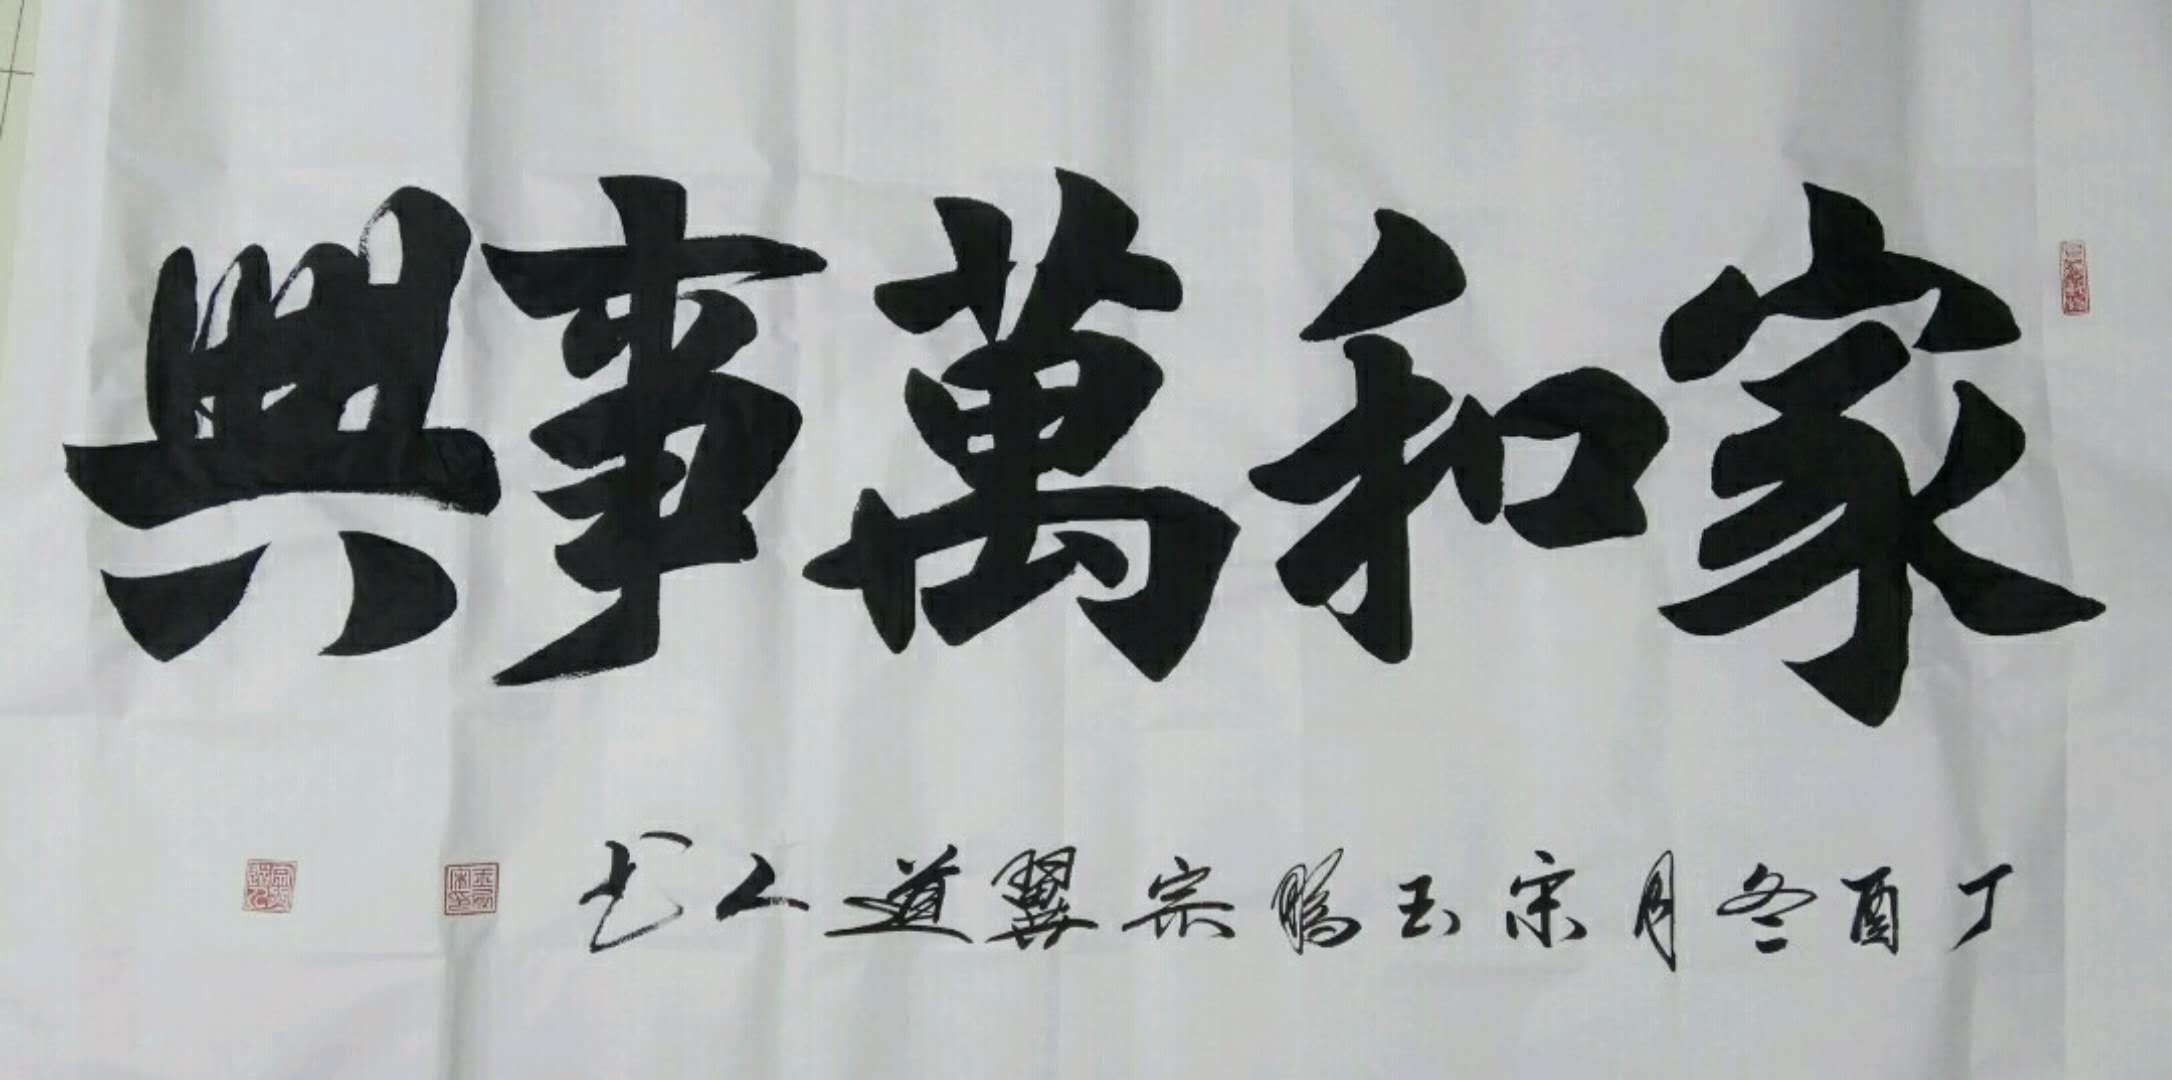 家和萬事興
丁酉冬月宗玉鵬宗翼道人书